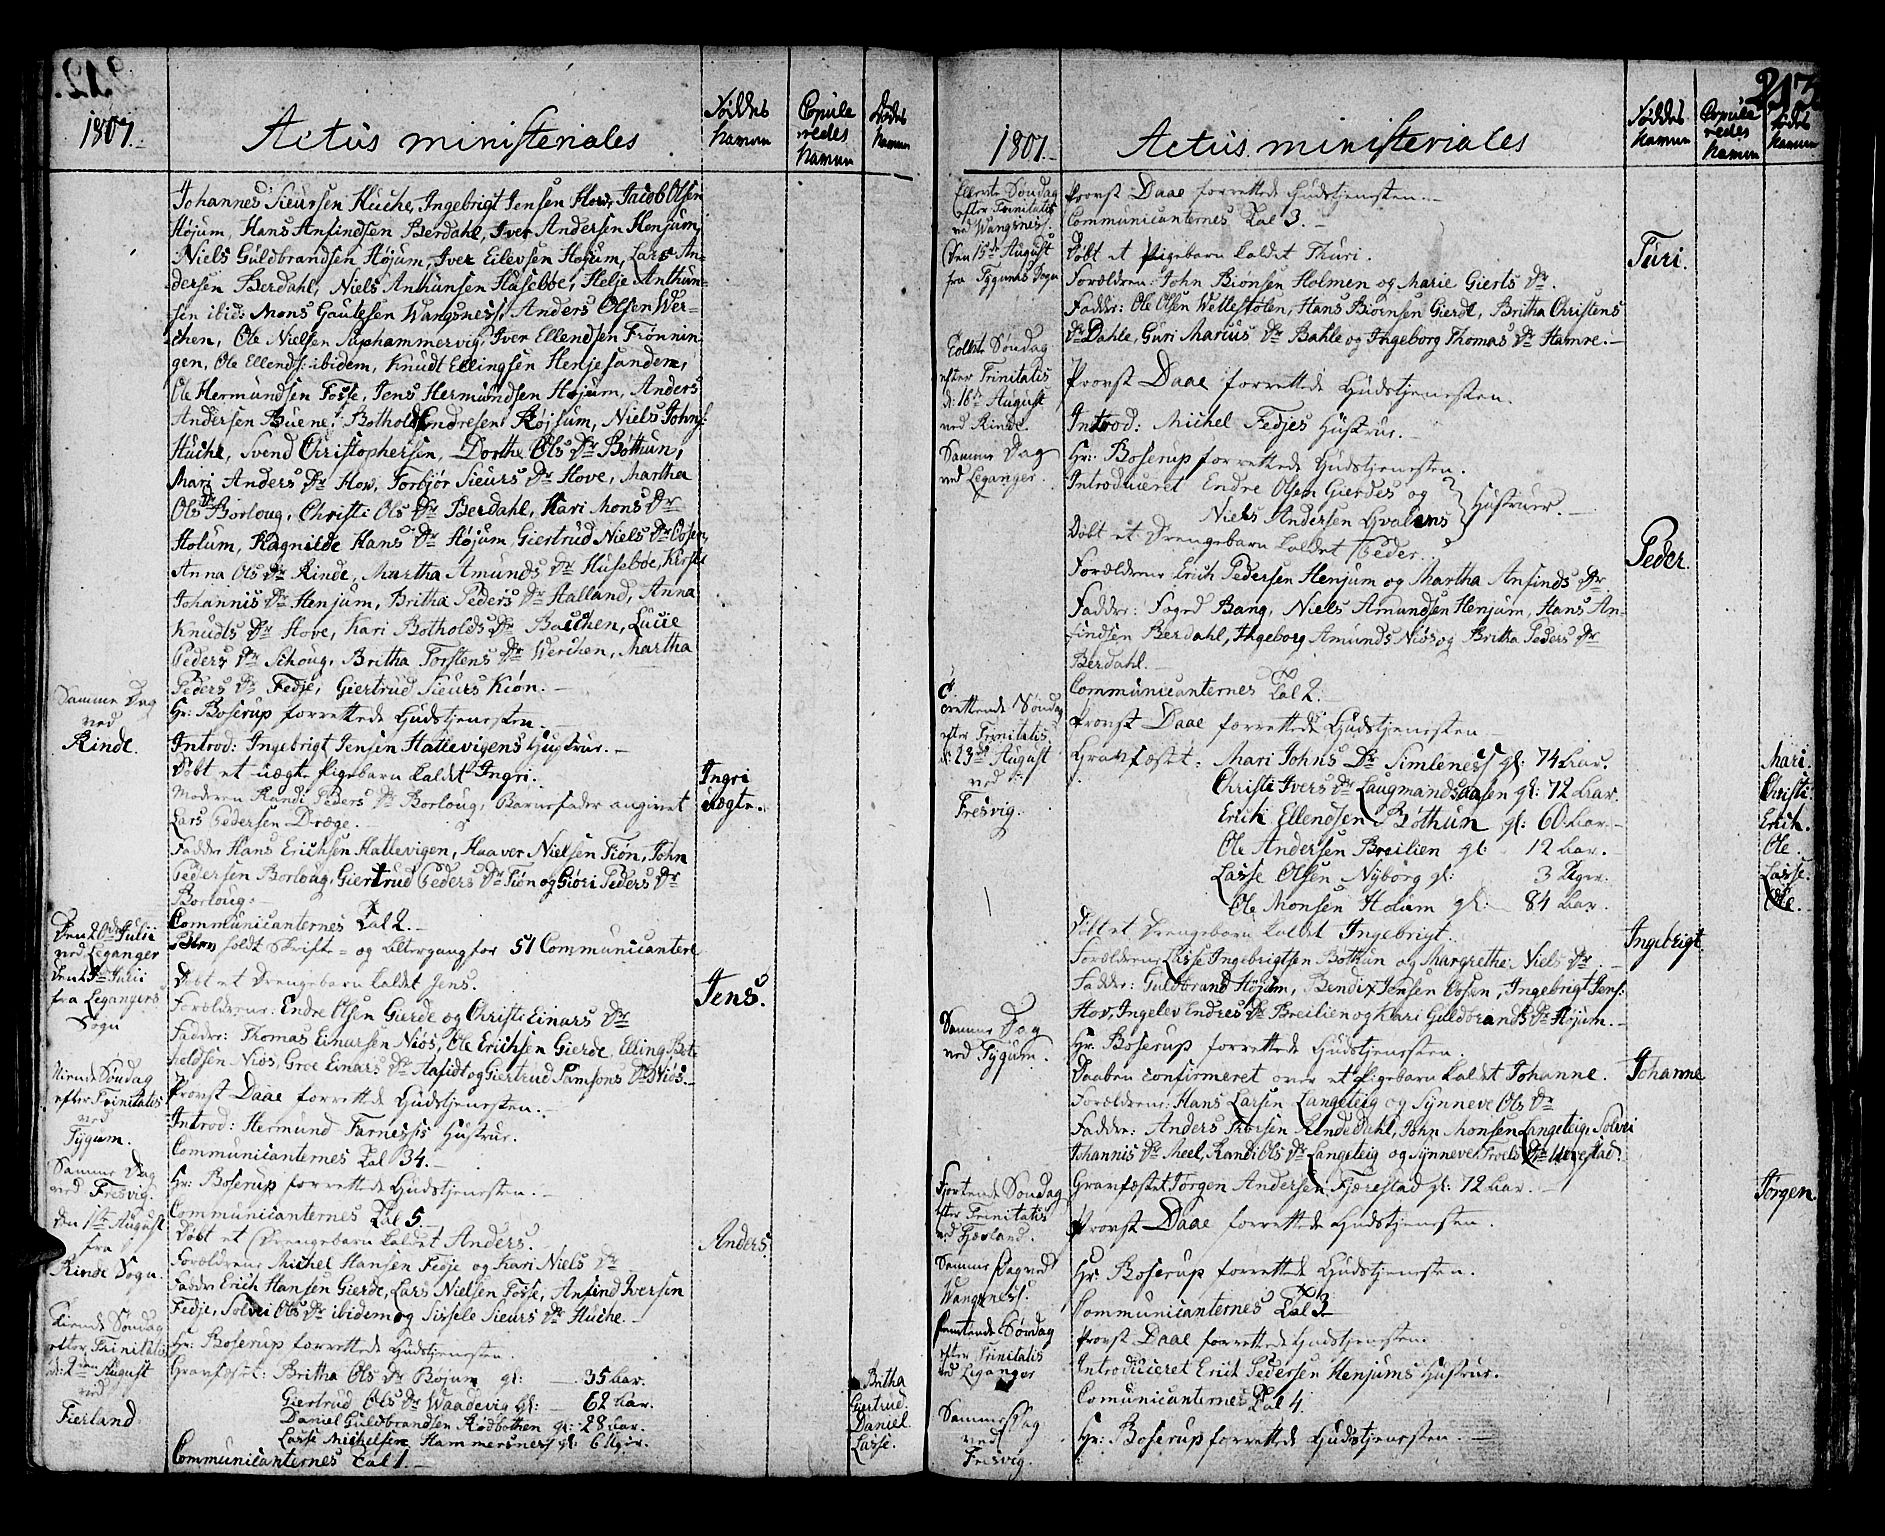 212.
1807.
Actus ministeriales
Føddes Namn
Copule redes Namn
Dødes Namn
Johannes Sieursen Huche, Ingebrigt Jensen Hov, Jacob Olsen
Højum, Hans Anfindsen Berdahl, Iver Andersen Henjum,
Niels Guldbrandsen Højum, Iver Eilevsen Højum, Lars An-
dersen Berdahl, Niels Anthunsen Husebøe, Helje Anthun-
sen ibid: Mons Gautesen Wangsness, Anders Olsen Wer-
chen, Ole Nielsen Suphammervig, Iver Ellendsen Frønnin-
gen, Ole Ellends: ibidem, Knudt Ellingsen Henjesanden,
Ole Hermundsen Fosse, Jens Hermundsen Højum, Anders
Andersen Buene, Bothold Endresen Røjsum, Niels Johns:
Huche, Svend Christophersen, Dorthe Ols Dr Bøthun,
Mari Anders Dr Hov, Torbjør Sieurs Dr Hove, Martha
Ols Dr Borloug, Christi Ols Dr Berdahl, Kari Mons Dr
Holum, Ragnilde Hans Dr Højum, Giertrud Niels Dr Oosen,
Anna Ols Dr Rinde, Martha Amunds Dr Husebøe, Kirsti
Johannis Dr Henjum, Britha Peders Dr Halland, Anna
Knudts Dr Hove, Kari Botholds Dr Bauchen, Lucie
Peders Dr Schoug, Britha Torstens Dr Werchen, Martha
Peders Dr Fedje, Giertrud Sieurs Kiøn.
Samme Dag
ved
Rinde.
Hr: Boserup forrettede Gudstjenesten.
Introd: Ingebrigt Jensen Hallevigens Hustrue.
Døbt et uægte Pigebarn kaldet Ingri.
Ingri
uægte.
Moderen Randi Peders Dr Borloug, Barnefader angivet
Lars Pedersen Dræge.
Fadder Hans Erichsen Hattevigen, Haaver Nielsen Tiøn, John
Pedersen Borloug, Giertrud Peders Dr Tiøn og Giøri Peders Dr
Borloug.
Communicanternes Tal 2.
ved Leganger
Blev holdt Skrifte- og Altergang for 51 Communicantere
fra Legangers
Sogn
Døbt et Drengebarn kaldet Jens.
Jens.
Forældrene: Endre Olsen Gierde og Christi Einars Dr
Fadder: Thomas Einarsen Niøs, Ole Erichsen Gierde, Elling Bot-
holdsen Niøs, Groe Einars Dr og Giertrud Samsons Dr Niøs.
Niende Søndag
efter Trinitatis
ved
Tygum.
Provst Daae forrettede Gudstjenesten.
Introd: Hermund Farnesses Hustrue.
Communicanternes Tal 34.
Samme Dag
ved Fresvig.
Hr: Boserup forrettede Gudstjenesten.
Communicanternes Tal 5.
Den 1ste August
fra
Rinde Sogn.
Døbt et Drengebarn kaldet Anders.
Anders.
Forældrene Michel Hansen Fedje og Kari Niels Dr
Fadder Erich Hansen Gierde, Lars Nielsen Fosse, Anfind Iversen
Fedje, Solvei Ols Dr ibidem og Sissele Sieurs Dr Huche.
Tiende Søndag
efter Trinitatis
d: 2den August
ved
Fierland.
Hr: Boserup forrettede Gudstjenesten.
Gravfæstet: Britha Ols Dr Bøjum gl: 35 Aar.
Britha
Giertrud Ols Dr Waadevig gl: 62 Aar.
Giertrud.
Daniel Guldbrandsen Rødbothen gl: 28 Aar.
Daniel.
Lasse Michelsen Hammersness gl: 6 Uger.
Lasse.
Communicanternes Tal 1.
213
1807.
Actus ministeriales
Føddes Namn
Copule redes Namn
Dødes Namn
Ellevte Søndag
efter Trinitatis
ved Wangsness.
Provst Daae forrettede Gudstjenesten.
Communicanternes Tal 3.
Den 15de August
fra Tygums Sogn
Døbt et Pigebarn kaldet Thuri.
Turi.
Forældrene: John Biønsen Holmen og Marie Gierts Dr.
Fadder: Ole Olsen Wettestølen, Hans Biørnsen Gierdt, Britha Christens
Dr Dahle, Guri Marcus Dr Bahle og Ingeborg Thomas Dr Hamre.
Tolvte Søndag
efter Trinitatis
d: 16de August
ved Rinde.
Provst Daae forrettede Gudstjenesten.
Introd: Michel Fedjes Hustrue.
Samme Dag
ved Leganger.
Hr: Boserup forrettede Gudstjenesten.
Introduceret Endre Olsen Gierdes og
Niels Andersen Hvalens Hustruer.
Døbt et Drengebarn kaldet Peder.
Peder.
Forældrene Erich Pedersen Henjum og Martha Anfinds Dr.
Fadder: Foged Bang, Niels Amundsen Henjum, Hans An-
findsen Berdahl, Ingeborg Amunds Niøs og Britha Peders Dr
Berdahl.
Communicanternes Tal 2.
Trettende Søndag
efter Trinitatis
d: 23de August
ved
Fresvig.
Provst Daae forrettede Gudstjenesten
Gravfæstet: Mari Johns Dr Simleness gl: 74 Aar.
Mari.
Christi Ivers Dr Laugmandsaasen gl: 72 Aar.
Christi.
Erich Ellendsen Bøthun gl: 60 Aar.
Erich.
Ole Andersen Breilien gl: 12 Aar.
Ole.
Lasse Olsen Nyborg gl: 3 Uger.
Lasse.
Ole Monsen Holum gl: 84 Aar.
Ole.
Døbt et Drengebarn kaldet Ingebrigt.
Ingebrigt.
Forældrene Lasse Ingebrigtsen Bøthun og Margrethe Niels Dr.
Fadder: Guldbrand Højum, Bendix Jonsen Oosen, Ingebrigt Jens:
Hov, Ingelev Endres Dr Breilien og Kari Guldbrands Dr Højum.
Samme Dag
ved Tygum.
Hr: Boserup forrettede Gudstjenesten.
Daaben confirmeret over et Pigebarn kaldet Johanne.
Johanne
Forældrene: Hans Larsen Langeteig og Synneve Ols Dr
Fadder: Anders Rendedahl, John Monsen Langeteig, Solvei
Johannis Dr Meel, Randi Ols Dr Langeteig og Synneve Troels Dr
Gravfæstet Jørgen Andersen Fjærestad gl: 72 Aar.
Jørgen.
Fjortende Søndag
efter Trinitatis
ved Fjærland.
Provst Daae forrettede Gudstjenesten.
Samme Dag ved
Wangsness.
Hr: Boserup forrettede Gudstjenesten.
Communicanternes Tal 3
Femtende Søndag
efter Trinitatis
ved Leganger
Provst Daae forrettede Gudstjenesten.
Introduceret Erich Pedersen Henjums Hustrue.
Comunicanternes Tal 4.
Samme Dag
ved
Fresvig.
Hr: Boserup forrettede Gudstjenesten.